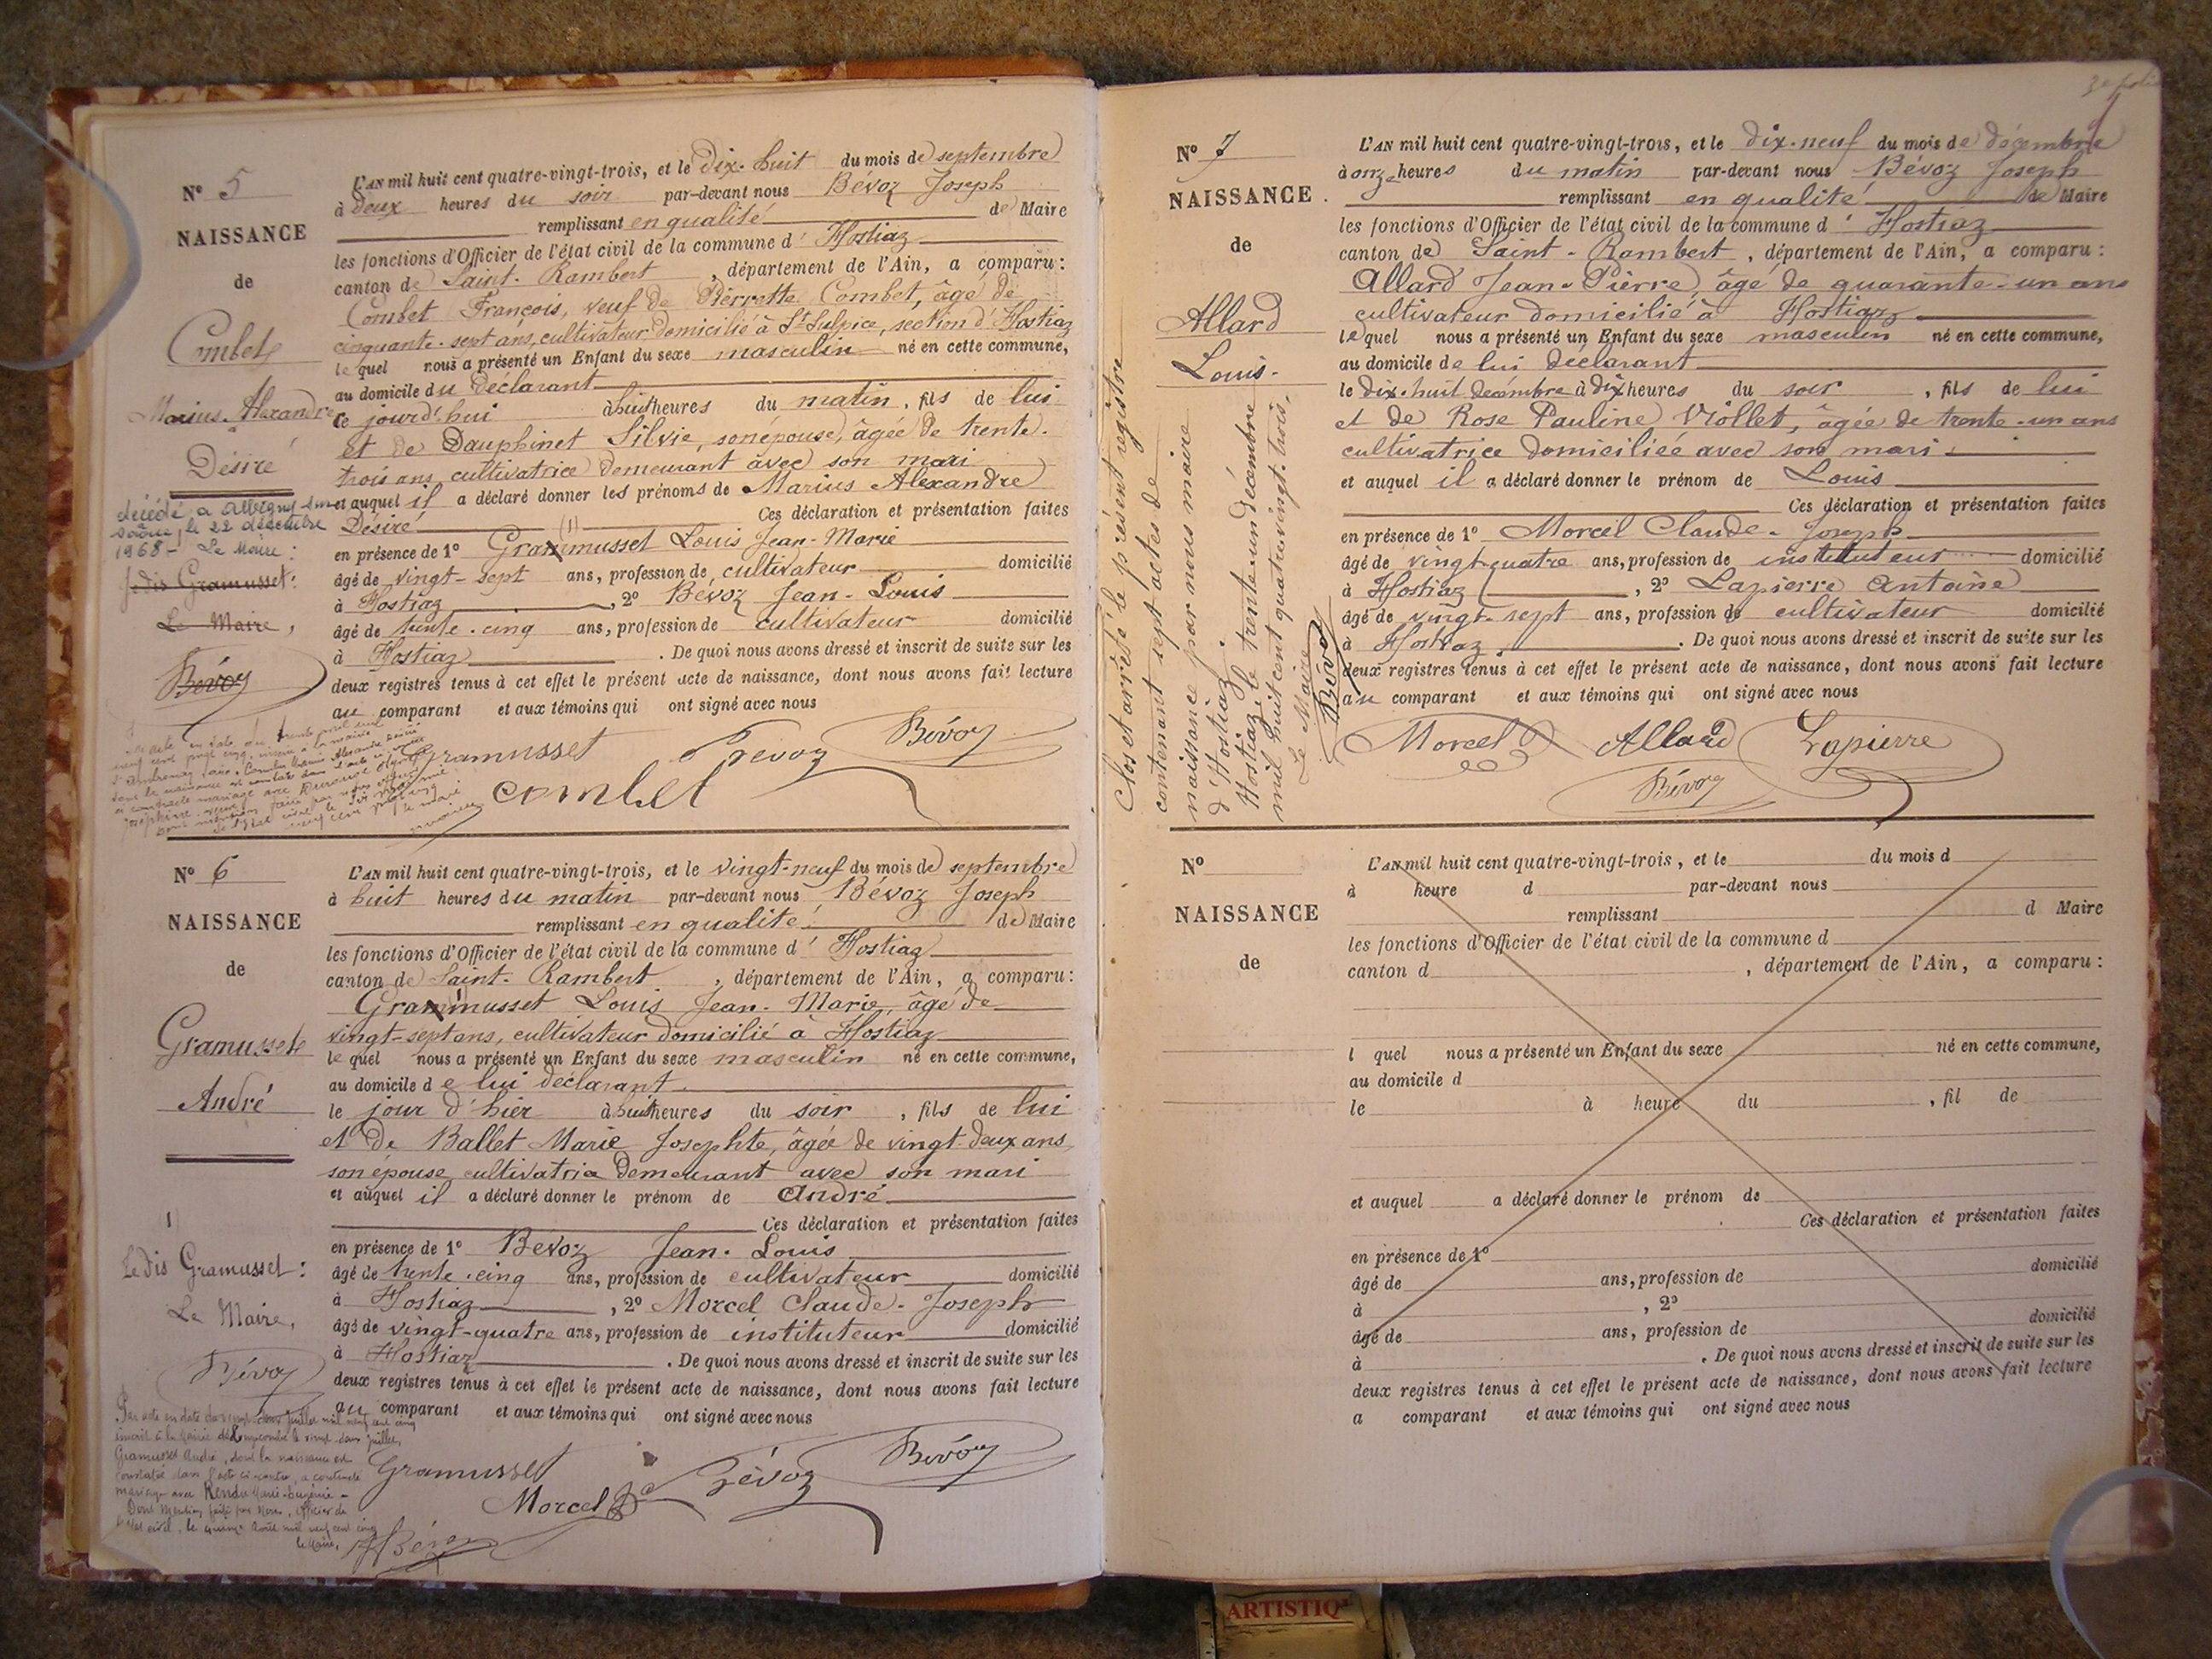 Nº 5
NAISSANCE
de
Combet
Marius Alexandre
Désiré
décédé à Albigny sur
Saône, le 22 décembre
1968 - Le Maire :
Gramusset :
Le Maire,
Bévoz
L'AN mil huit cent quatre-vingt-trois, et le Dix-huit du mois de septembre
à Deux heures du soir par-devant nous Bévoz Joseph
remplissant en qualité de Maire
les fonctions d'Officier de l'état civil de la commune d' Hostiaz
canton de Saint-Rambert, département de l'Ain, a comparu :
Combet François, veuf de Pierrette Combet, âgé de
cinquante-sept ans, cultivateur domicilié à St Sulpice, section d'Hostiaz
lequel nous a présenté un Enfant du sexe masculin né en cette commune,
au domicile du Déclarant
ce jourd'hui à huit heures du matin, fils de lui
et de Dauphinet Silvie, son épouse, âgée de trente-
trois ans, cultivatrice demeurant avec son mari
et auquel il a déclaré donner les prénoms de Marius Alexandre
Désiré Ces déclaration et présentation faites
en présence de 1º Grammusset Louis Jean-Marie
âgé de vingt-sept ans, profession de cultivateur domicilié
à Hostiaz, 2º Bévoz Jean-Louis
âgé de trente-cinq ans, profession de cultivateur domicilié
à Hostiaz. De quoi nous avons dressé et inscrit de suite sur les
deux registres tenus à cet effet le présent acte de naissance, dont nous avons fait lecture
au comparant et aux témoins qui ont signé avec nous
Gramusset Bévoz Bévoz
combet
Nº 6
NAISSANCE
de
Gramusset
André
1
Gramusset :
Le Maire,
Bévoz
L'AN mil huit cent quatre-vingt-trois, et le vingt-neuf du mois de septembre
à huit heures du matin par-devant nous Bévoz Joseph
remplissant en qualité de Maire
les fonctions d'Officier de l'état civil de la commune d' Hostiaz
canton de Saint-Rambert, département de l'Ain, a comparu :
Grammusset Louis Jean-Marie, âgé de
vingt-sept ans, cultivateur domicilié à Hostiaz
lequel nous a présenté un Enfant du sexe masculin né en cette commune,
au domicile de lui déclarant
le jour d'hier à huit heures du soir, fils de lui
et de Ballet Marie Josephte, âgée de vingt-deux ans,
son épouse cultivatrice demeurant avec son mari
et auquel il a déclaré donner le prénom de André
Ces déclaration et présentation faites
en présence de 1º Bévoz Jean-Louis
âgé de trente-cinq ans, profession de cultivateur domicilié
à Hostiaz, 2º Morcel Claude-Joseph
âgé de vingt-quatre ans, profession de instituteur domicilié
à Hostiaz. De quoi nous avons dressé et inscrit de suite sur les
deux registres tenus à cet effet le présent acte de naissance, dont nous avons fait lecture
au comparant et aux témoins qui ont signé avec nous
Gramusset Bévoz Bévoz
Morcel
Gramusset André, dont la naissance est
constatée dans l'acte ci-contre, a contracté
mariage avec Rendu Marie-Eugénie -
Dont mention faite par Nous, officier de
l'état civil, le quinze Août mil neuf cent cinq
le Maire,
Clos et arrêté le présent registre
contenant sept actes de
naissance par nous maire
d'Hostiaz.
Hostiaz, le trente-un décembre
mil huit cent quatre-vingt-trois.
Le Maire
Bévoz
Nº 7
NAISSANCE
de
Allard
Louis.
L'AN mil huit cent quatre-vingt-trois, et le dix-neuf du mois de décembre
à onze heures du matin par-devant nous Bévoz Joseph
remplissant en qualité de Maire
les fonctions d'Officier de l'état civil de la commune d' Hostiaz
canton de Saint-Rambert, département de l'Ain, a comparu :
Allard Jean-Pierre, âgé de quarante-un ans
cultivateur domicilié à Hostiaz
lequel nous a présenté un Enfant du sexe masculin né en cette commune,
au domicile de lui déclarant
le dix-huit décembre à dix heures du soir, fils de lui
et de Rose Pauline Viollet, âgée de trente-un ans
cultivatrice domiciliée avec son mari.
et auquel il a déclaré donner le prénom de Louis
Ces déclaration et présentation faites
en présence de 1º Morcel Claude-Joseph
âgé de vingt-quatre ans, profession de instituteur domicilié
à Hostiaz, 2º Lapierre Antoine
âgé de vingt-sept ans, profession de cultivateur domicilié
à Hostiaz. De quoi nous avons dressé et inscrit de suite sur les
deux registres tenus à cet effet le présent acte de naissance, dont nous avons fait lecture
au comparant et aux témoins qui ont signé avec nous
Morcel Allard Lapierre
Bévoz
Nº
NAISSANCE
de
L'AN mil huit cent quatre-vingt-trois, et le du mois d
à heure d par-devant nous
remplissant d Maire
les fonctions d'Officier de l'état civil de la commune d
canton d , département de l'Ain, a comparu :
l quel nous a présenté un Enfant du sexe né en cette commune,
au domicile d
le à heure du , fil de
et auquel a déclaré donner le prénom de
Ces déclaration et présentation faites
en présence de 1º
âgé de ans, profession de domicilié
à , 2º
âgé de ans, profession de domicilié
à . De quoi nous avons dressé et inscrit de suite sur les
deux registres tenus à cet effet le présent acte de naissance, dont nous avons fait lecture
a comparant et aux témoins qui ont signé avec nous
ARTISTIQ